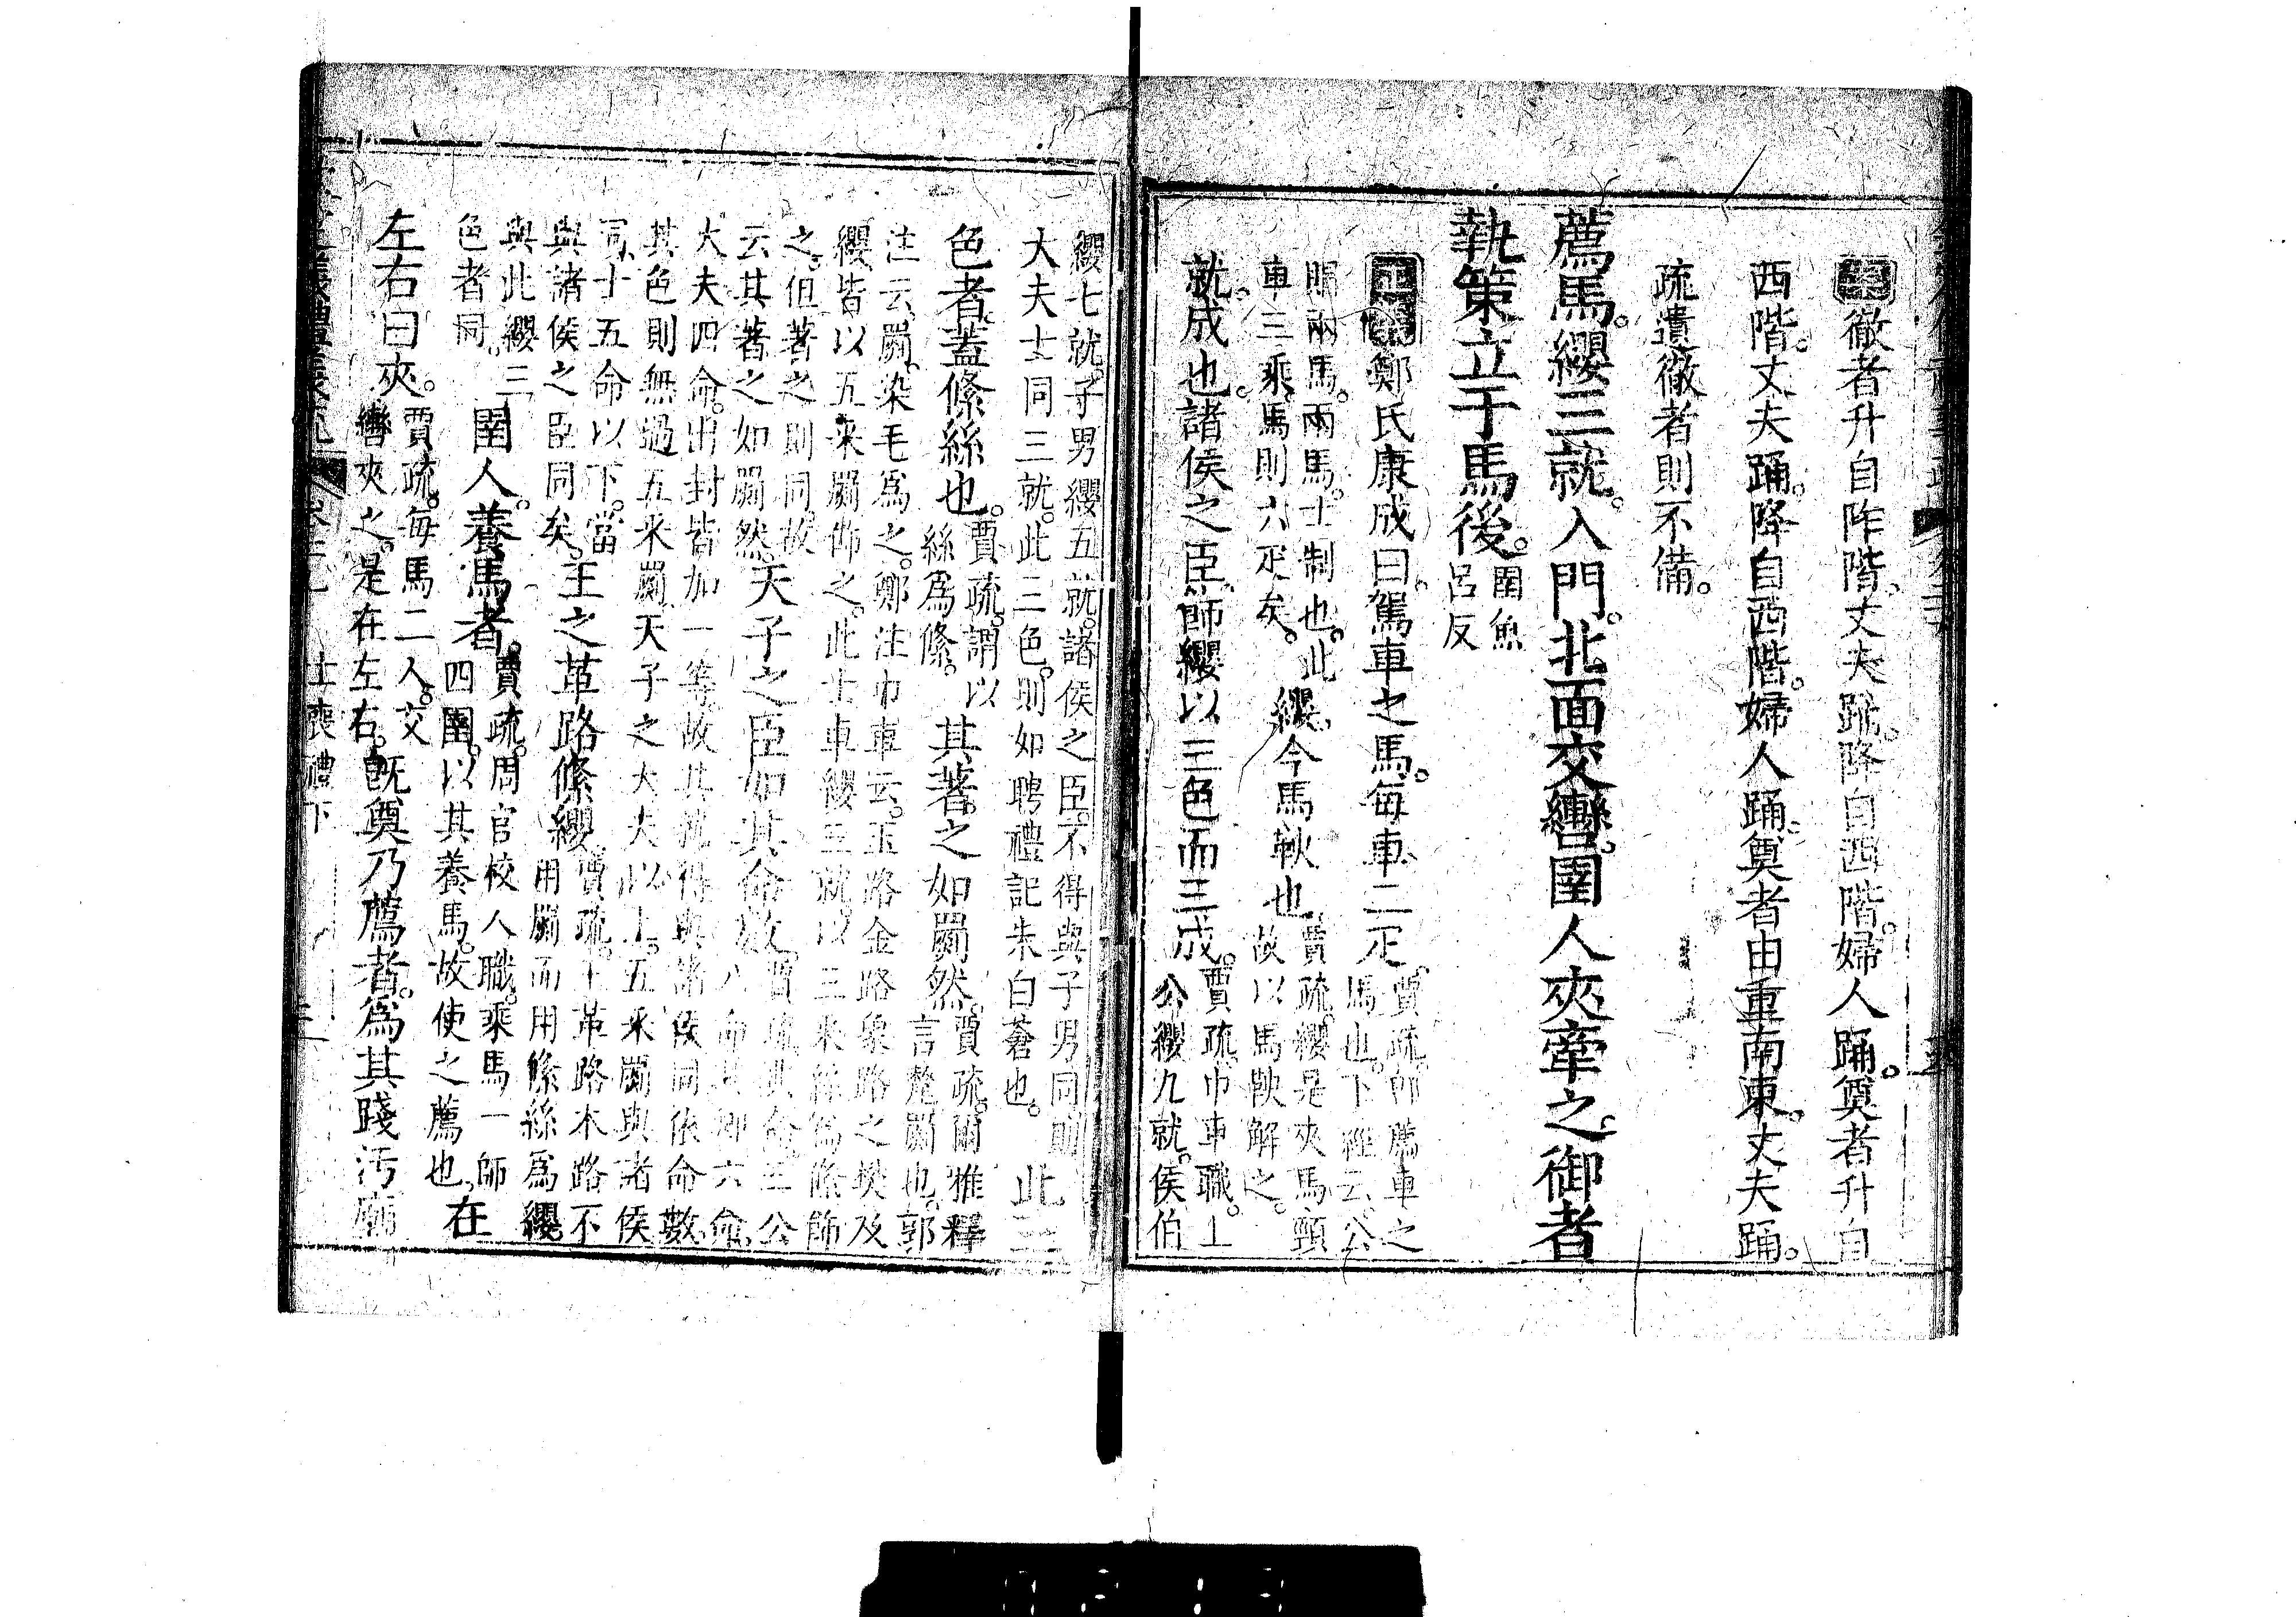 徹者升自阼階丈夫踊降自西階婦人踊奠者升自
西階丈夫踊降自西階婦人踊奠者由重南東丈夫踊
疏遺徹者則不備
薦馬纓三就入門北面交轡圉人夾牽之御者
執策立于馬後
圉魚
呂反
鄭氏康成曰駕車之馬每車二疋
賈疏卽薦車之
馬也下經云公
賵兩馬兩馬士制也此
車三乘馬則六疋矣
纓今馬鞅也
賈疏纓是夾馬頸
故以馬鞅解之
就成也諸侯之臣飾纓以三色而三成
賈疏巾車職上
公纓九就侯伯
纓七就子男纓五就諸侯之臣不得與子男同則
大夫士同三就此三色則如聘禮記朱白蒼也
此三
色者蓋絛絲也
賈疏謂以
絲爲絛
其著之如罽然
賈疏爾雅釋
言氂罽也郭
注云罽染毛爲之鄭注巾車云玉路金路象路之樊及
纓皆以五采罽飾之此士車纓三就以三采絲爲絛飾
之但著之則同故
云其著之如罽然
天子之臣如其命數
賈疏其命三公
八命其卿六命
大夫四命出封皆加一等故其就得與諸侯同依命數
其色則無過五采罽天子之大夫以上五采罽與諸侯
同士五命以下當
與諸侯之臣同矣
王之革路絛纓
賈疏王革路木路不
用罽而用絛絲爲纓
與此纓三
色者同
圉人養馬者
賈疏周官校人職乘馬一師
四圉以其養馬故使之薦也
在
左右曰夾
賈疏每馬二人交
轡夾之是在左右
旣奠乃薦者爲其踐汚廟
士喪禮下